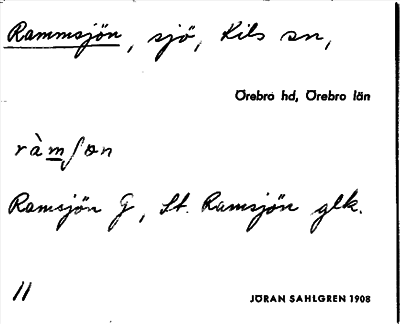 Rammsjön, sjö, Kils sn,
Örebro hd, Örebro län
ràmʃɵn
Ramsjön G, St. Ramsjön glk.
11
JÖRAN SAHLGREN 1908